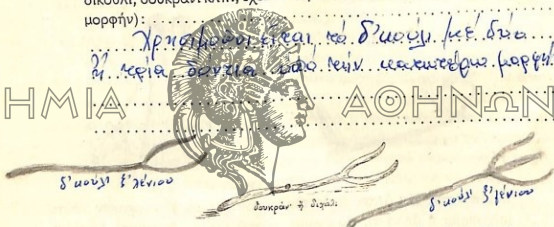 δικούλι, δουκράνι κλπ., σχ
μορφήν):
Χρησιμοποιεῖται τὸ δ'κούλι μὲ δύο
ἢ τρία δόντια ἀπὸ τὴν κατωτέρω μορφή
ΗΜΙΑ ΑΘΗΝΩΝ
δ'κούλι ξ'λένιου
δουκράν' ἢ διχάλι
δ'κούλι ξ'λένιου